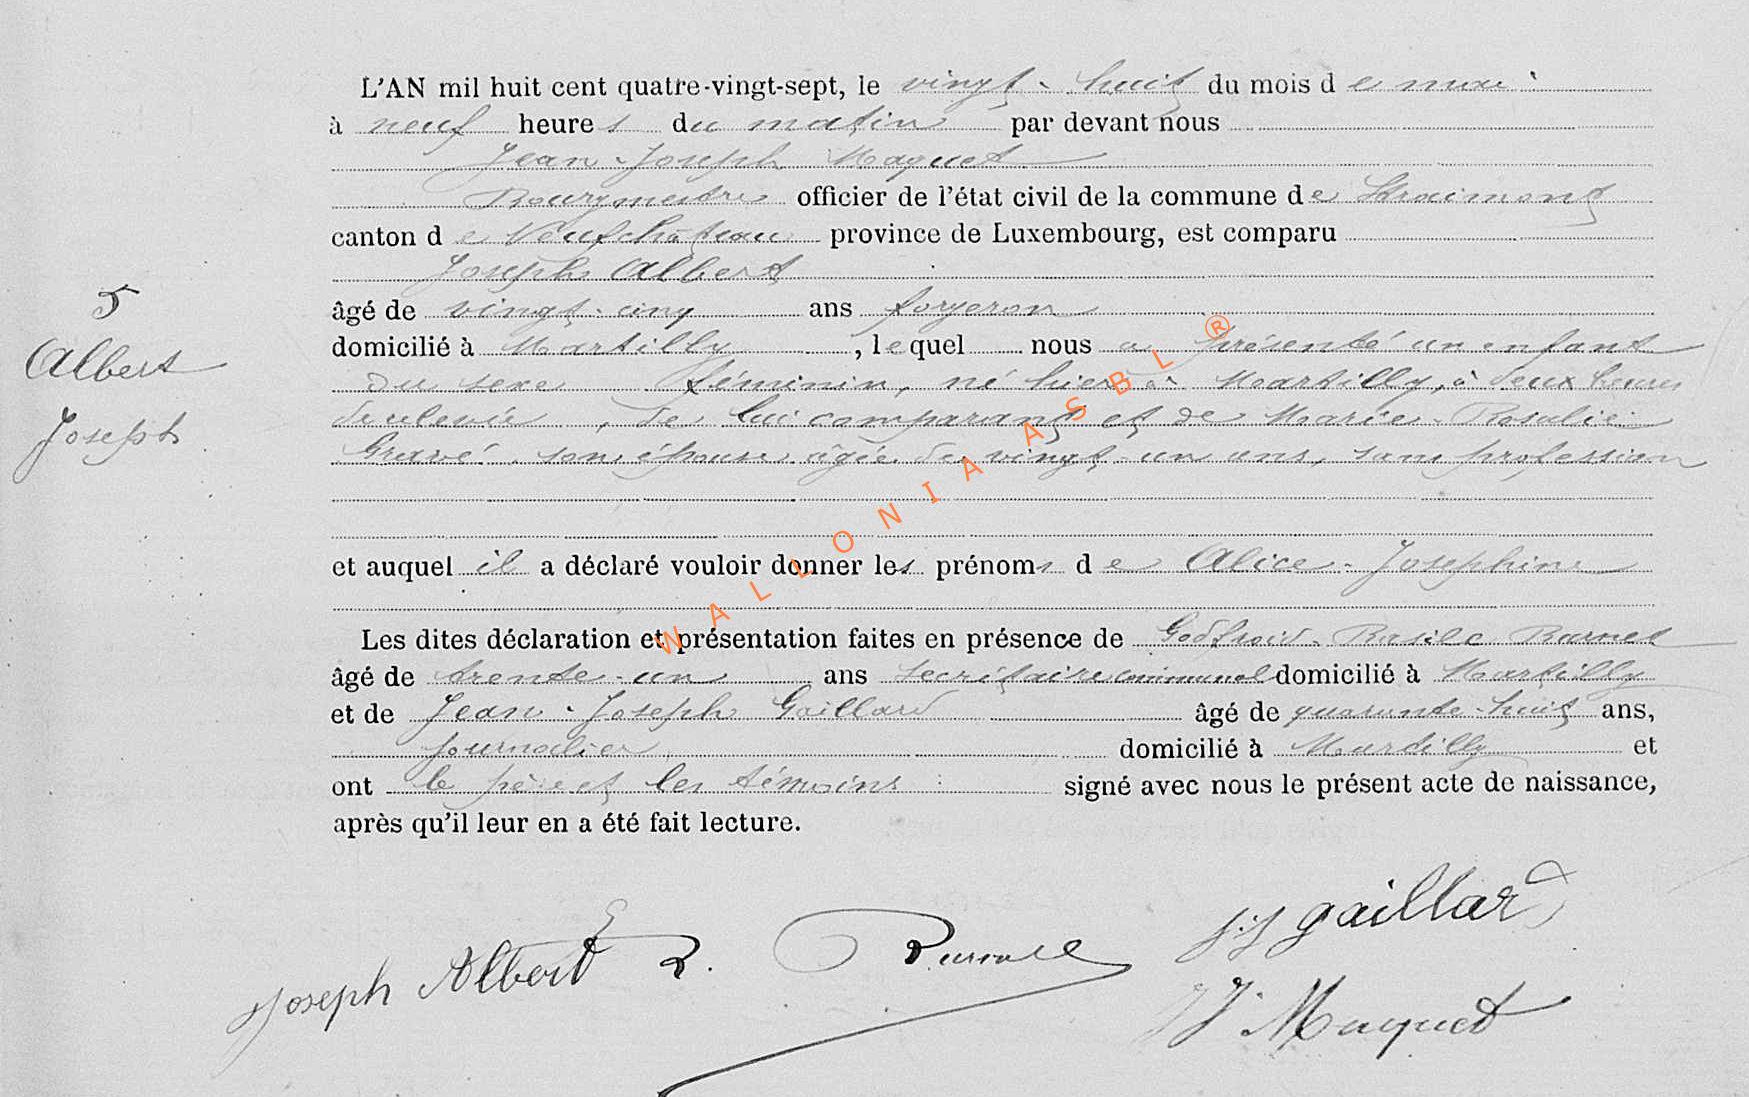 L'AN mil huit cent quatre-vingt-sept, le vingt-huit du mois de mai
à neuf heures du matin par devant nous
Jean-Joseph Maquet
Bourgmestre officier de l'état civil de la commune de Straimont
canton de Neufchâteau province de Luxembourg, est comparu
Joseph Albert
âgé de vingt-cinq ans forgeron
domicilié à Martilly, lequel nous a présenté un enfant
du sexe féminin, né hier à Martilly, à deux heures
de, de lui comparant et de Marie-Rosalie
Gravé, son épouse âgée de vingt-un ans, sans profession
et auquel il a déclaré vouloir donner les prénoms de Alice-Josephine
Les dites déclaration et présentation faites en présence de Godfroid-Basile
âgé de trente-un ans secrétaire communal domicilié à Martilly
et de Jean-Joseph Gaillard âgé de quarante-huit ans,
journalier domicilié à Martilly et
ont le père et les témoins signé avec nous le présent acte de naissance,
après qu'il leur en a été fait lecture.
5
Albert
Joseph
J.J gaillard
Joseph Albert B.
JJ. Maquet
WALLONIA ASBL ®